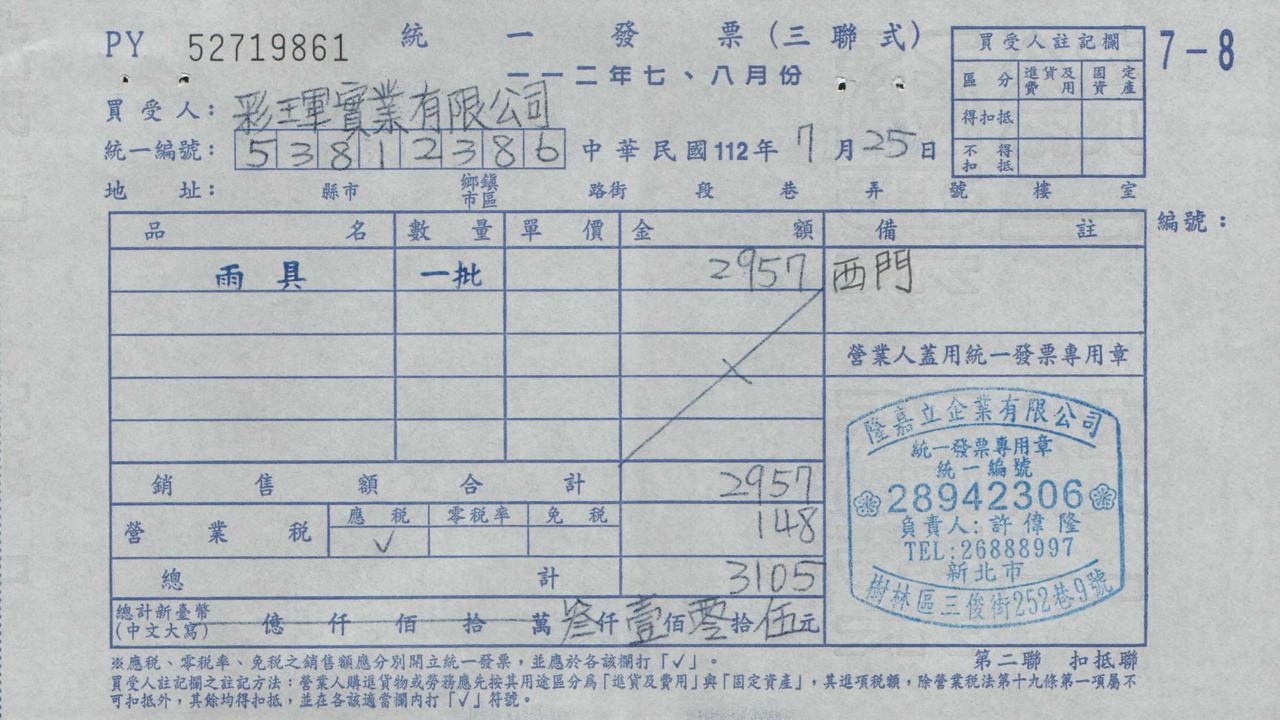 PY 52719861 統一發票(三聯式)
一一二年七、八月份
7-8
買受人註記欄
區分 進貨及費用 固定資產
得扣抵
不得扣抵
買受人:彩琿實業有限公司
統一編號:53812386 中華民國112年7月25日
地址: 縣市 鄉鎮市區 路街 段 巷 弄 號 樓 室
品名 數量 單價 金額 備註 編號:
雨具 一批 2957 西門
營業人蓋用統一發票專用章
銷售額合計 2957
營業稅 應稅 ✓ 零稅率 免稅 148
總計 3105
總計新臺幣(中文大寫) 億仟佰拾萬叁仟壹佰零拾伍元
隆嘉立企業有限公司
統一發票專用章
統一編號
28942306
負責人:許偉隆
TEL:26888997
新北市
樹林區三俊街252巷9號
第二聯 扣抵聯
※應稅、零稅率、免稅之銷售額應分別開立統一發票,並應於各該欄打「✓」。
買受人註記欄之註記方法:營業人購進貨物或勞務應先按其用途區分為「進貨及費用」與「固定資產」,其進項稅額,除營業稅法第十九條第一項屬不
可扣抵外,其餘均得扣抵,並在各該適當欄內打「✓」符號。